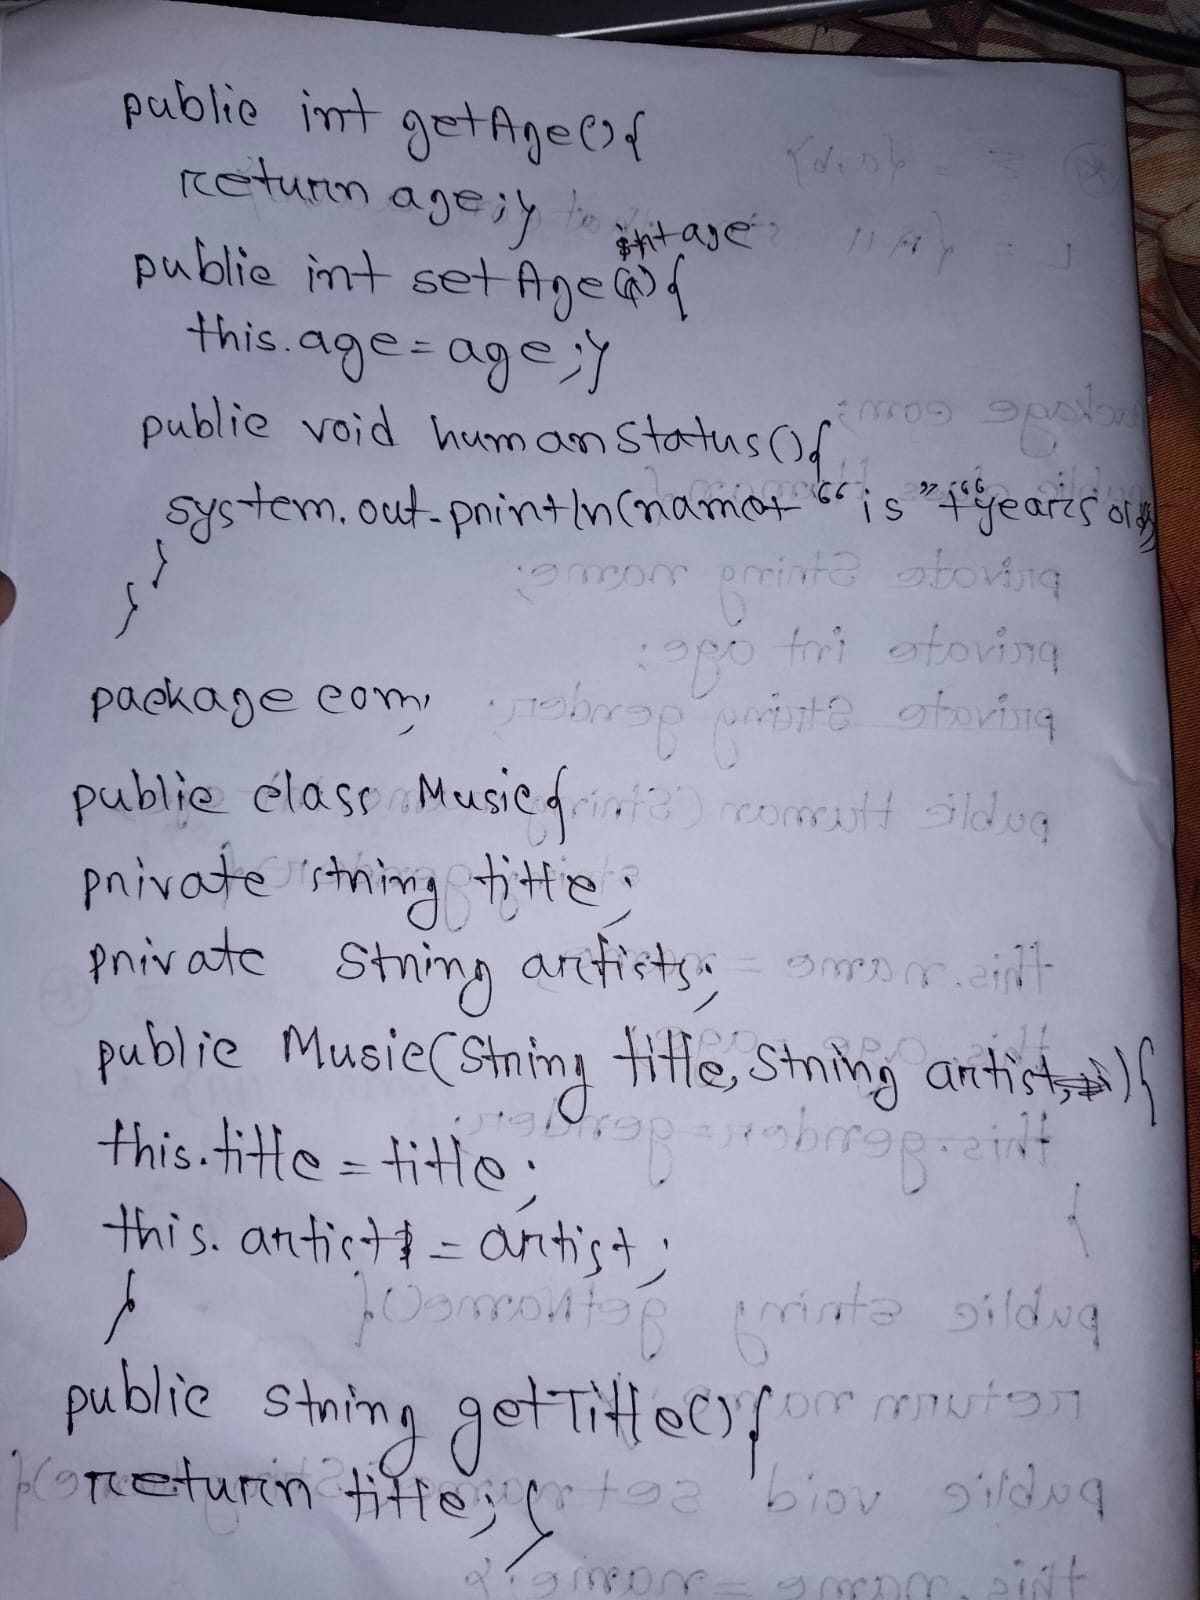 public int getAge(){
return age;}
int age
public int setAge(){
this.age=age;}
public void humanStatus(){
system.out.println(name+ "is"+"years old");
}
}
package com;
public class Music{
private string title;
private String artists;
public Music(String title, String artist){
this.title = title;
this.artist = artist;
}
public string getTitle(){
return title; }